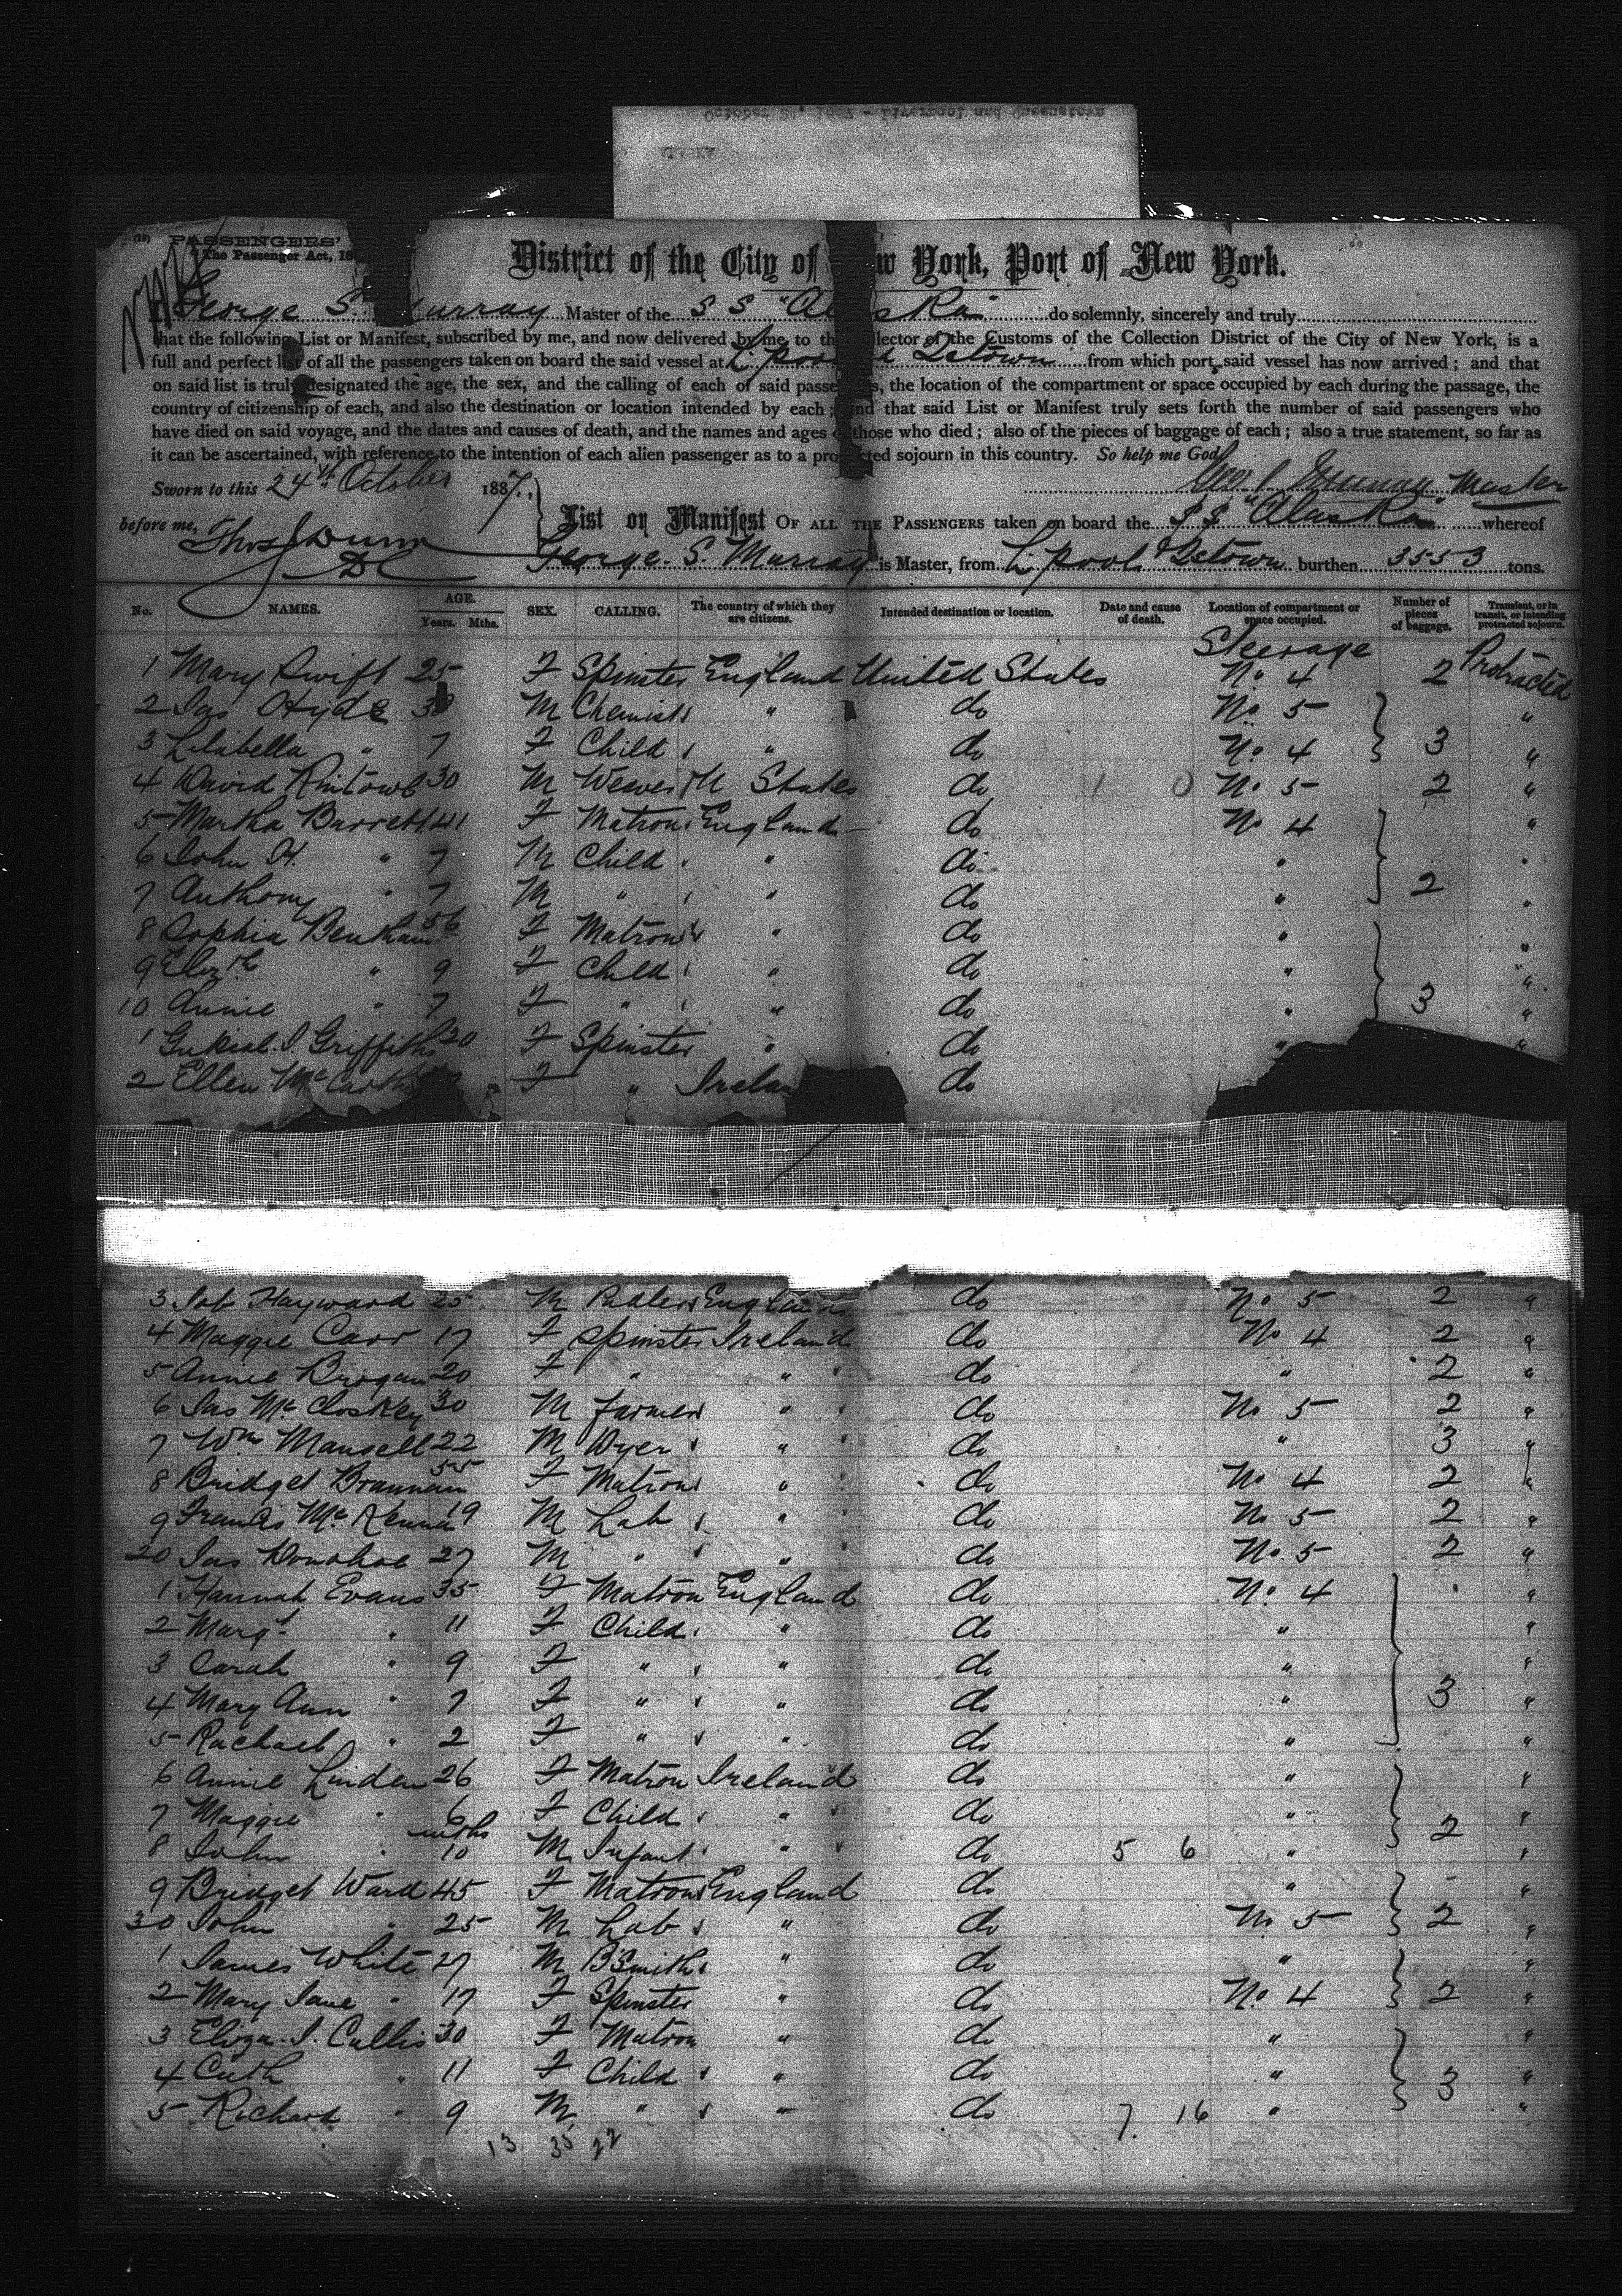 October 24, 1887 - Liverpool and Queenstown
ALASKA
(18) PASSENGERS'
The Passenger Act, 18
District of the City of w York, Port of New York.
George S. Murray Master of the S S "Alaska" do solemnly, sincerely and truly
that the following List or Manifest, subscribed by me, and now delivered by me to th llector of the Customs of the Collection District of the City of New York, is a
full and perfect list of all the passengers taken on board the said vessel at L'pool & Qetown from which port said vessel has now arrived; and that
on said list is truly designated the age, the sex, and the calling of each of said passe s, the location of the compartment or space occupied by each during the passage, the
country of citizenship of each, and also the destination or location intended by each; and that said List or Manifest truly sets forth the number of said passengers who
have died on said voyage, and the dates and causes of death, and the names and ages o those who died; also of the pieces of baggage of each; also a true statement, so far as
it can be ascertained, with reference to the intention of each alien passenger as to a pro cted sojourn in this country. So help me God.
Sworn to this 24th October 1887. Geo S Murray Master
before me, Thos J Dunn List or Manifest OF ALL THE PASSENGERS taken on board the S S "Alaska" whereof
DC George. S. Murray is Master, from L'pool & Qetown burthen 3553 tons.
No. NAMES. AGE. Years. Mths. SEX. CALLING. The country of which they are citizens. Intended destination or location. Date and cause of death. Location of compartment or space occupied. Number of pieces of baggage. Transient, or in transit, or intending protracted sojourn.
Steerage
1 Mary Swift 25 F Spinster England United States No 4 2 Protracted
2 Jas Hyde 38 M Chemist " do No 5 "
3 Lilabella " 7 F Child " do No 4 3 "
4 David Rintowl 30 M Weaver U States do 1 0 No 5 2 "
5 Martha Barrett 41 F Matron England do No 4
6 John H. " 7 M Child " do " "
7 Anthony " 7 M " " do " 2 "
8 Sophia Benham 56 F Matron " do " "
9 Elizth " 9 F Child " do " "
10 Annie " 7 F " " do " 3 "
1 J. Griffiths 20 F Spinster " do " "
2 Ellen McCarth F " Irelan do
3 Job Hayward 25 M Pudler England do No 5 2 "
4 Maggie Carr 17 F Spinster Ireland do No 4 2 "
5 Annie Brogan 20 F " " do " 2 "
6 Jas McCloskey 30 M Farmer " do No 5 2 "
7 Wm Mansell 22 M Dyer " do " 3 "
8 Bridget Brannan 55 F Matron " do No 4 2 "
9 Francis McKenna 19 M Lab " do No 5 2 "
20 Jas Donohoe 27 M " " do No 5 2 "
1 Hannah Evans 35 F Matron England do No 4 "
2 Margt " 11 F Child " do " "
3 Sarah " 9 F " " do " "
4 Mary Ann " 7 F " " do " 3 "
5 Rachael " 2 F " " do " "
6 Annie Linden 26 F Matron Ireland do " "
7 Maggie " 6 F Child " do " 2 "
8 John " mths 10 M Infant " do 5 6 " "
9 Bridget Ward 45 F Matron England do " "
30 John " 25 M Lab " do No 5 2 "
1 James White 27 M B'Smith " do " "
2 Mary Jane " 17 F Spinster " do No 4 2 "
3 Eliza. J. Cullis 30 F Matron " do " "
4 Cuth " 11 F Child " do " 3 "
5 Richard " 9 M " " do 7. 16 " "
13 35 22